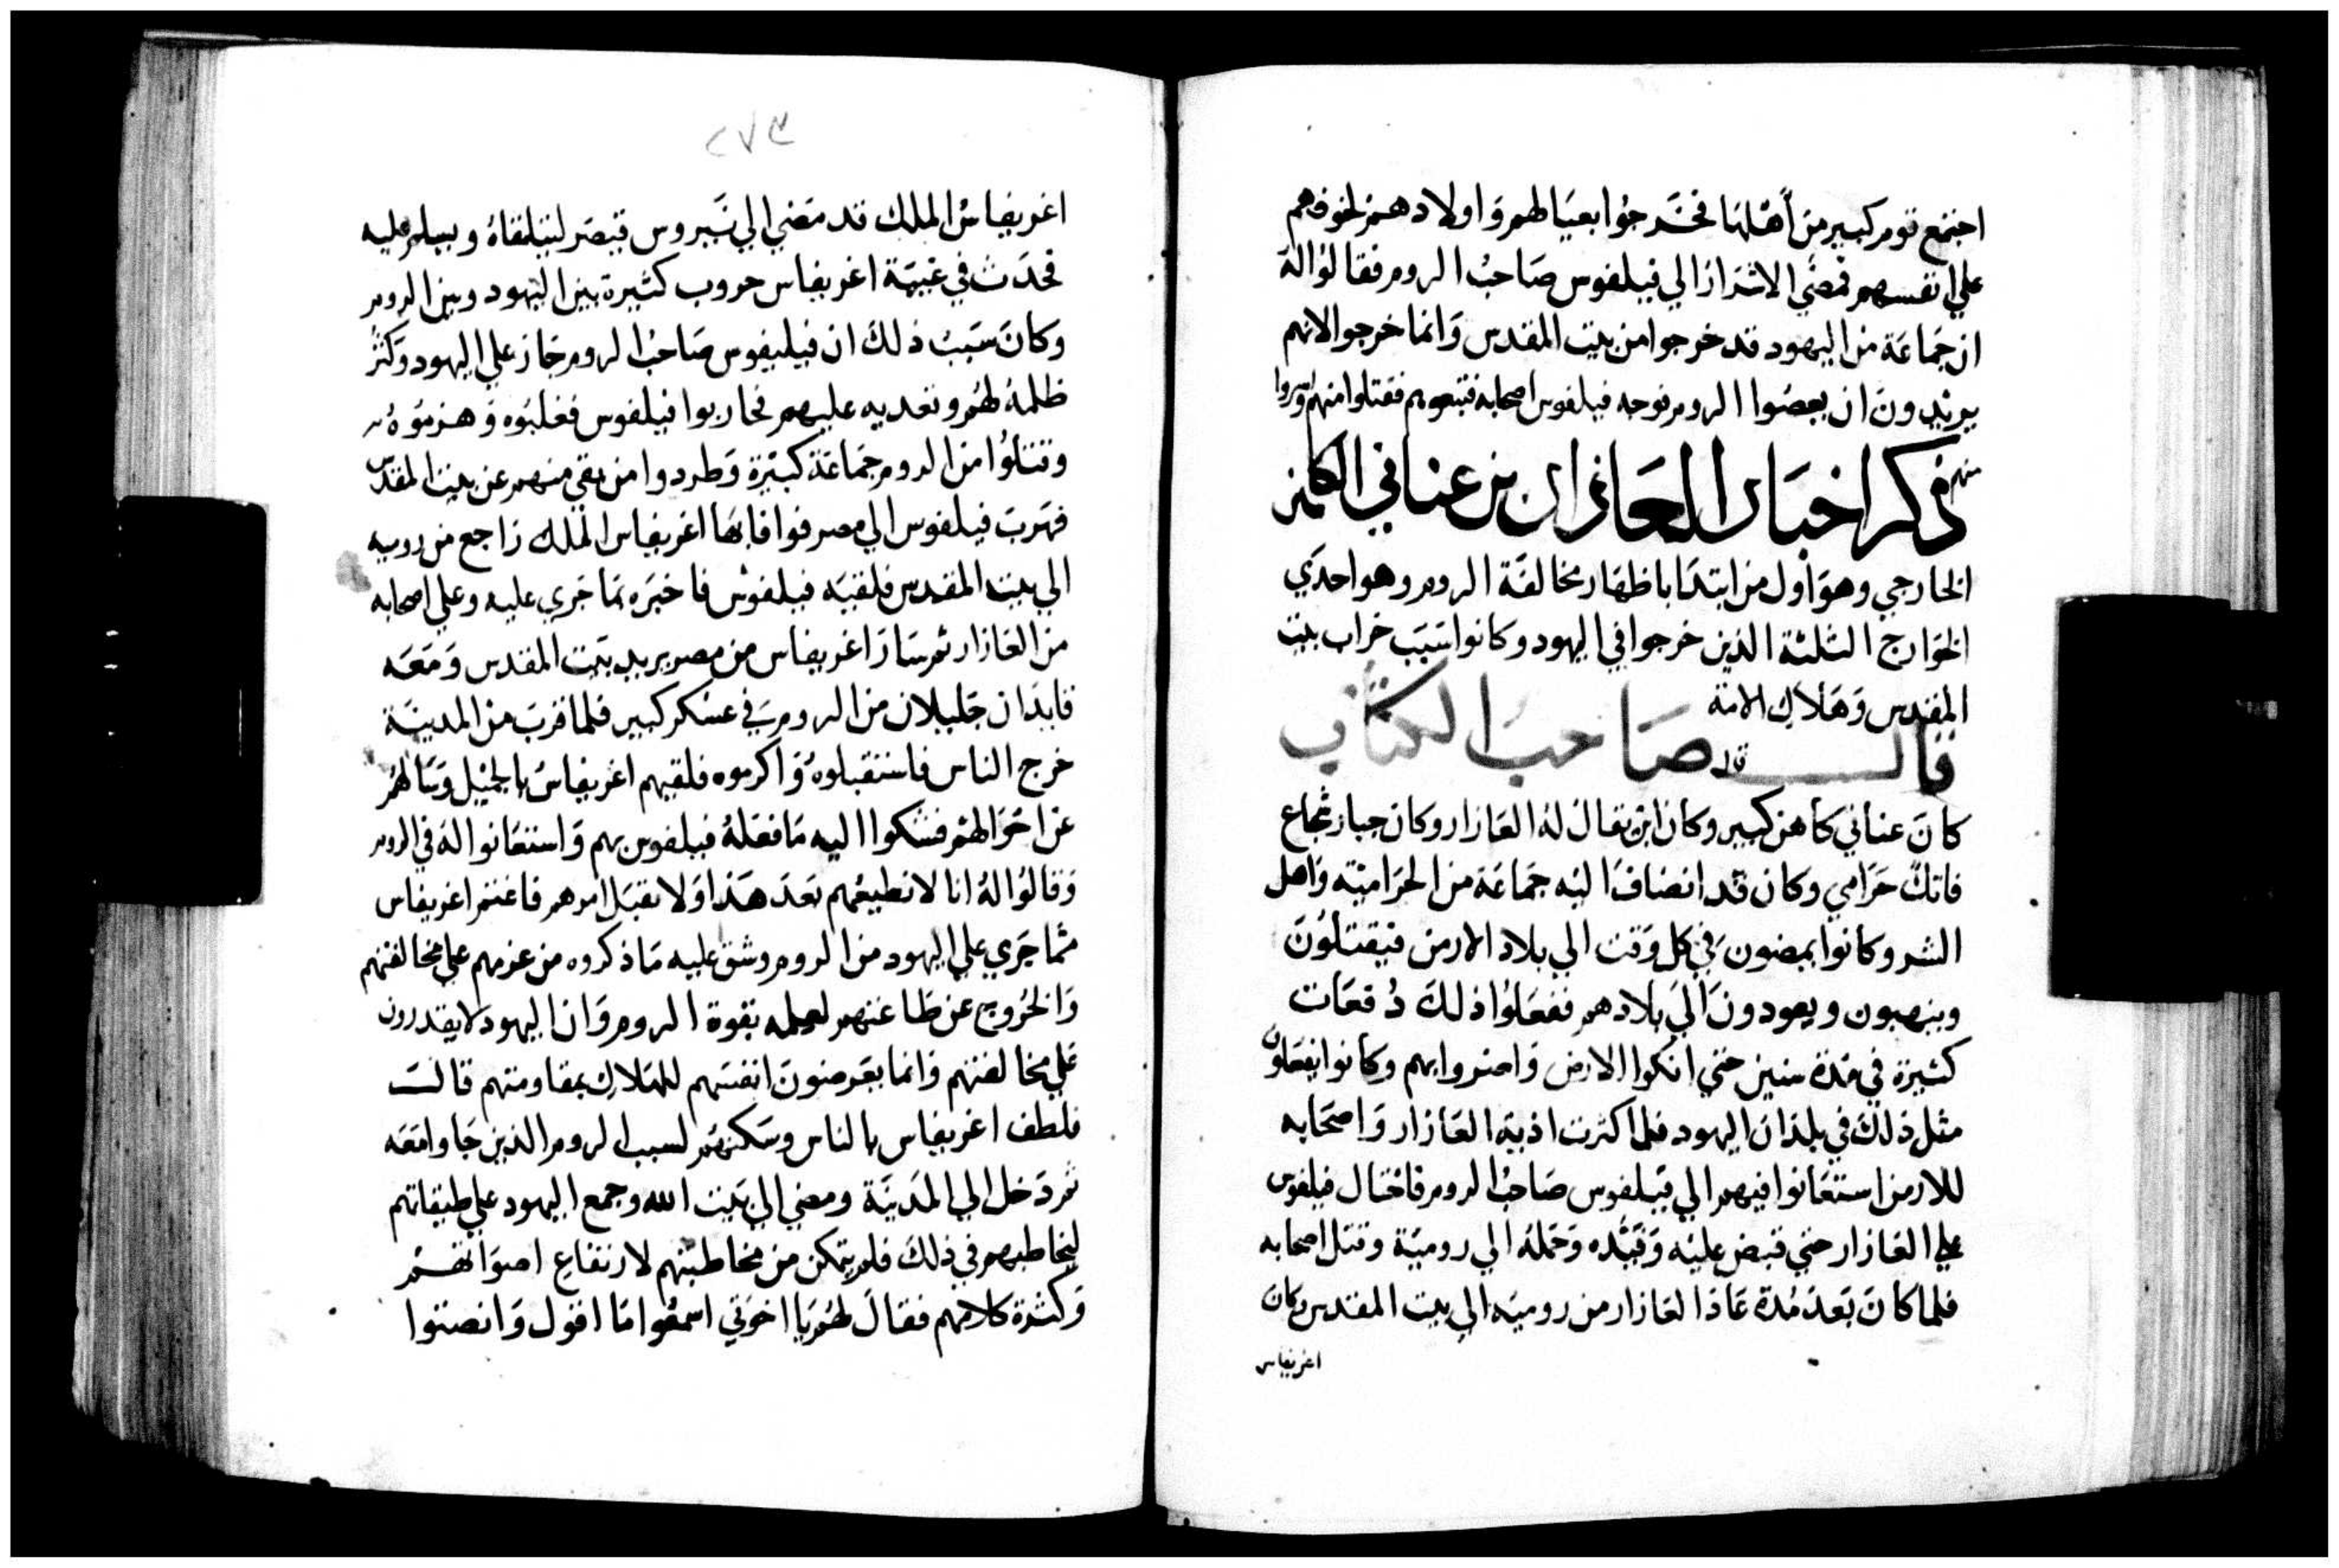 اجتمع قوم كبير من أهلها فخرجوا بعيالهم واولادهم لخوفهم
علي انفسهم فمضي الاشرار الي فيلفوس صاحب الروم فقالوا له
ان جماعة من اليهود قد خرجوا من بيت المقدس وانما خرجوا لانهم
يريدون ان يعصوا الروم فوجه فيلفوس اصحابه فتبعوهم فقتلوا منهم واسروا
منهم
ذكر اخبار العازار بن عناني الكاهن
الخارجي وهو اول من ابتدا باظهار مخالفة الروم وهو احدي
الخوارج الثلثة الذين خرجوا في اليهود وكانوا سبب خراب بيت
المقدس وهلاك الامة
قال صاحب الكتاب
كان عناني كاهن كبير وكان ابن يقال له العازار وكان جبار شجاع
فاتك حرامي وكان قد انضاف اليه جماعة من الحراميته واهل
الشر وكانوا يمضون في كل وقت الي بلاد الارمن فيقتلون
وينهبون ويعودون الي بلادهم ففعلوا ذلك دفعات
كثيرة في مدة سنين حتي انكوا الارض واضروا بهم وكانوا يفعلون
مثل ذلك في بلدان اليهود فلما كثرت اذية العازار واصحابه
للارمن استغانوا فيهم الي فيلفوس صاحب الروم فاحتال فيلفوس
علي العازار حتي قبض عليه وقيده وحمله الي رومية وقتل اصحابه
فلما كان بعد مدة عاد العازار من رومية الي بيت المقدس وكان
اغريفاس
٢٧٣
اغريفاس الملك قد مضي الي نيروس قيصر ليتلقاه ويسلم عليه
فحدث في غيبة اغريفاس حروب كثيرة بين اليهود وبين الروم
وكان سبب ذلك ان فيليفوس صاحب الروم جاز علي اليهود وكثر
ظلمه لهم وتعديه عليهم فحاربوا فيلفوس فغلبوه وهزموه
وقتلوا من الروم جماعة كبيرة وطردوا من بقي منهم عن بيت المقدس
فهرب فيلفوس الي مصر فوافا بها اغريفاس الملك راجع من روميه
الي بيت المقدس فلقيه فيلفوس فاخبره بما جري عليه وعلي اصحابه
من العازار ثم سار اغريفاس من مصر يريد بيت المقدس ومعه
قايدان جليلان من الروم في عسكر كبير فلما قرب من المدينة
خرج الناس فاستقبلوه واكرموه فلقيهم اغريفاس بالجميل وسالهم
عن احوالهم فشكوا اليه ما فعله فيلفوس بهم واستغانوا له في الروم
وقالوا له انا لا نطيعهم بعد هذا ولا نقبل امرهم فاغتم اغريفاس
مما جري علي اليهود من الروم وشق عليه ما ذكروه من عزمهم علي مخالفتهم
والخروج عن طاعتهم لعلمه بقوة الروم وان اليهود لا يقدرون
علي مخالفتهم وانما يعرضون انفسهم للهلاك بمقاومتهم قال
فلطف اغريفاس بالناس وسكنهم لسبب الروم الذين جاوا معه
ثم دخل الي المدينة ومضي الي بيت الله وجمع اليهود علي طبقاتهم
ليخاطبهم في ذلك فلم يتمكن من مخاطبتهم لارتفاع اصواتهم
وكثرة كلامهم فقال لهم يا اخوتي اسمعوا ما اقول وانصتوا